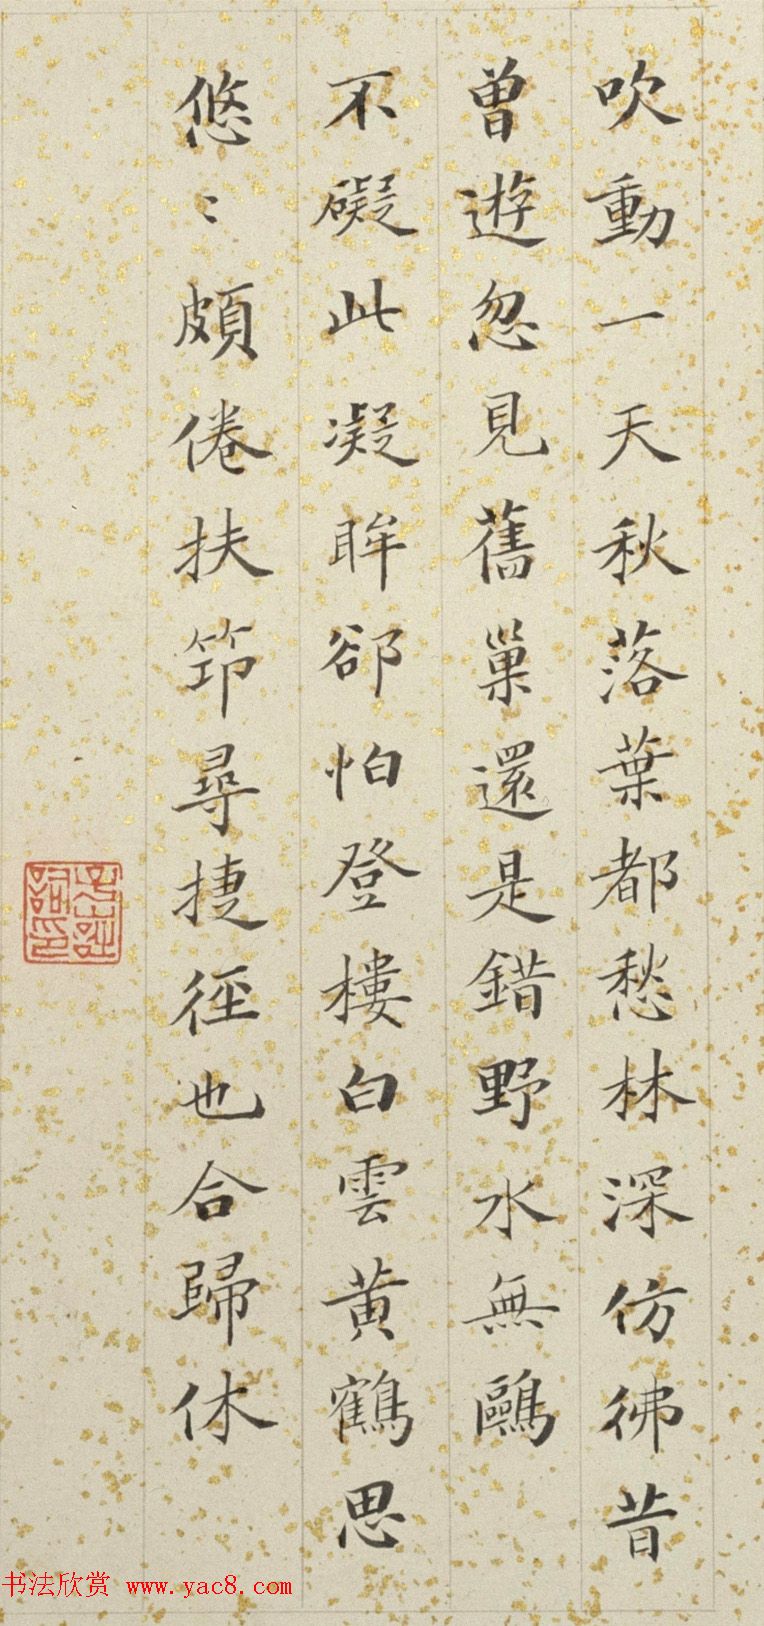 吹動一天秋落葉都愁林深仿彿昔
曾遊忽見舊巢還是錯野水無鷗
不礙此凝眸卻怕登樓白雲黄鶴思
悠〻頗倦扶筇尋捷徑也合歸休
书法欣赏 www.yac8.com